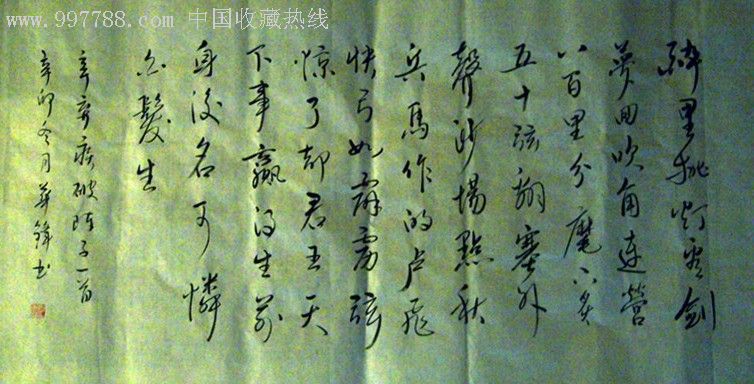 www.997788.com 中国收藏热线
醉里挑灯看剑
夢回吹角连營
八百里分麾下炙
五十弦翻塞外
聲沙場點秋
兵馬作的卢飛
快弓如霹雳弦
惊了却君王天
下事赢得生前
身後名可憐
白髮生
辛弃疾破阵子一首
辛卯冬月 书